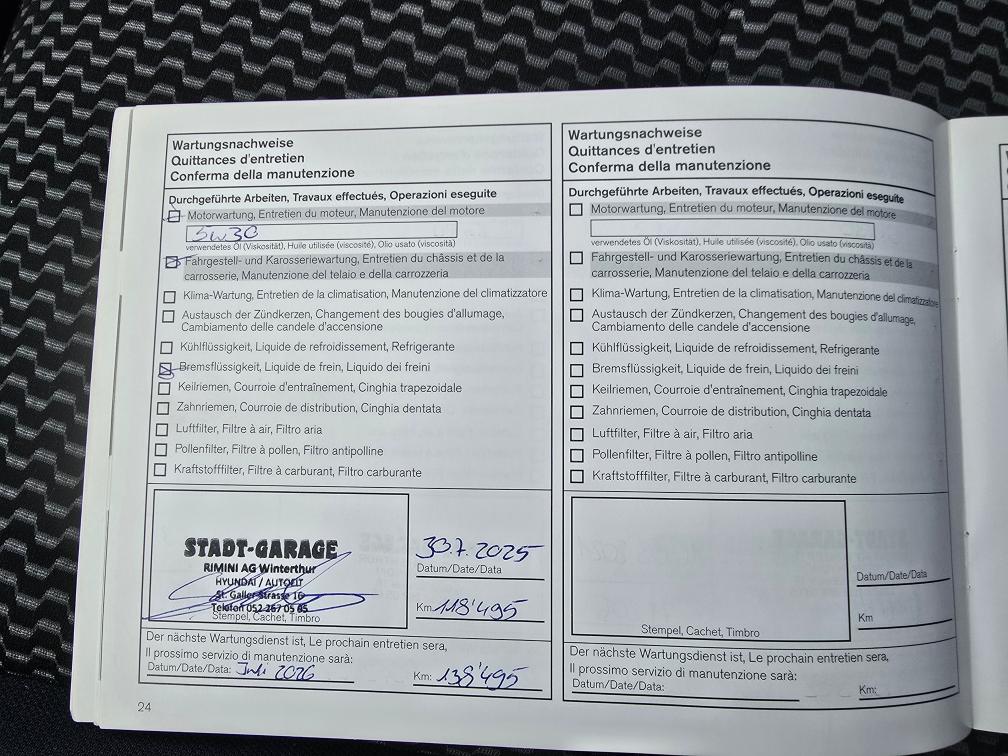 Wartungsnachweise
Quittances d'entretien
Conferma della manutenzione
Durchgeführte Arbeiten, Travaux effectués, Operazioni eseguite
Motorwartung, Entretien du moteur, Manutenzione del motore
5w30
verwendetes Öl (Viskosität), Huile utilisée (viscosité), Olio usato (viscosità)
Fahrgestell- und Karosseriewartung, Entretien du châssis et de la
carrosserie, Manutenzione del telaio e della carrozzeria
Klima-Wartung, Entretien de la climatisation, Manutenzione del climatizzatore
Austausch der Zündkerzen, Changement des bougies d'allumage,
Cambiamento delle candele d'accensione
Kühlflüssigkeit, Liquide de refroidissement, Refrigerante
Bremsflüssigkeit, Liquide de frein, Liquido dei freini
Keilriemen, Courroie d'entraînement, Cinghia trapezoidale
Zahnriemen, Courroie de distribution, Cinghia dentata
Luftfilter, Filtre à air, Filtro aria
Pollenfilter, Filtre à pollen, Filtro antipolline
Kraftstofffilter, Filtre à carburant, Filtro carburante
STADT-GARAGE
RIMINI AG Winterthur
HYUNDAI / AUTOFIT
St. Galler-Strasse 16
Telefon 052 267 05 65
Stempel, Cachet, Timbro
30.7.2025
Datum/Date/Data
Km 118'495
Der nächste Wartungsdienst ist, Le prochain entretien sera,
Il prossimo servizio di manutenzione sarà:
Datum/Date/Data: Juli 2026
Km: 138'495
24
Wartungsnachweise
Quittances d'entretien
Conferma della manutenzione
Durchgeführte Arbeiten, Travaux effectués, Operazioni eseguite
Motorwartung, Entretien du moteur, Manutenzione del motore
verwendetes Öl (Viskosität), Huile utilisée (viscosité), Olio usato (viscosità)
Fahrgestell- und Karosseriewartung, Entretien du châssis et de la
carrosserie, Manutenzione del telaio e della carrozzeria
Klima-Wartung, Entretien de la climatisation, Manutenzione del climatizzatore
Austausch der Zündkerzen, Changement des bougies d'allumage,
Cambiamento delle candele d'accensione
Kühlflüssigkeit, Liquide de refroidissement, Refrigerante
Bremsflüssigkeit, Liquide de frein, Liquido dei freini
Keilriemen, Courroie d'entraînement, Cinghia trapezoidale
Zahnriemen, Courroie de distribution, Cinghia dentata
Luftfilter, Filtre à air, Filtro aria
Pollenfilter, Filtre à pollen, Filtro antipolline
Kraftstofffilter, Filtre à carburant, Filtro carburante
Stempel, Cachet, Timbro
Datum/Date/Data
Km
Der nächste Wartungsdienst ist, Le prochain entretien sera,
Il prossimo servizio di manutenzione sarà:
Datum/Date/Data:
Km: